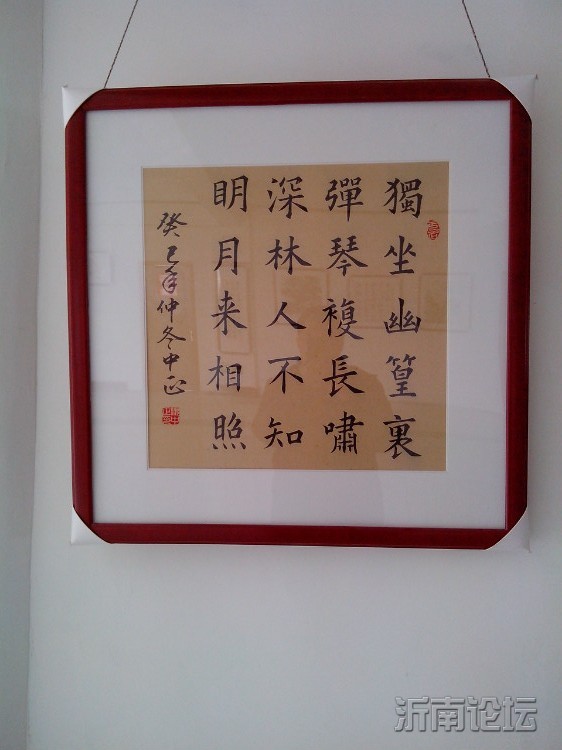 獨坐幽篁裏
彈琴複長嘯
深林人不知
明月来相照
癸巳年仲冬中正
沂南论坛